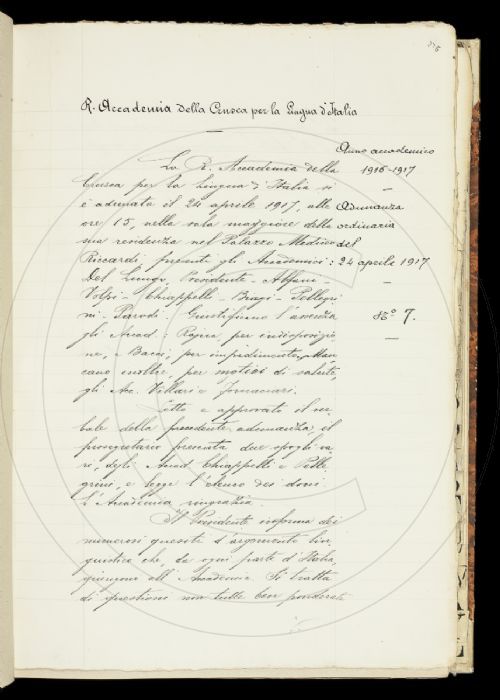 R. Accademia della Crusca per la Lingua d'Italia
Anno accademico
1916-1917
Adunanza
ordinaria
del
24 aprile 1917
N.° 7.
La R. Accademia della
Crusca per la Lingua d'Italia si
è adunata il 24 aprile 1917, alle
ore 15, nella sala maggiore della
sua residenza nel Palazzo Mediceo
Riccardi, presenti gli Accademici:
Del Lungo, Presidente - Alfani -
Volpi - Chiappelli - Biagi - Pellegri
ni - Parodi. Giustificano l'assenza
gli Accad.: Rajna, per indisposizio
ne, e Bacci, per impedimento. Man
cano inoltre, per motivi di salute
gli Acc. Villari e Fornaciari.
Letto e approvato il ver
bale della precedente adunanza, il
prosegretario presenta due spogli va
ri, degli Accad. Chiappelli e Pelle
grini, e legge l'elenco dei doni.
L'Accademia ringrazia.
Il Presidente informa dei
numerosi quesiti d'argomento lin
guistico che, da ogni parte d'Italia,
giungono all'Accademia. Si tratta
di questioni non tutte ben ponderate